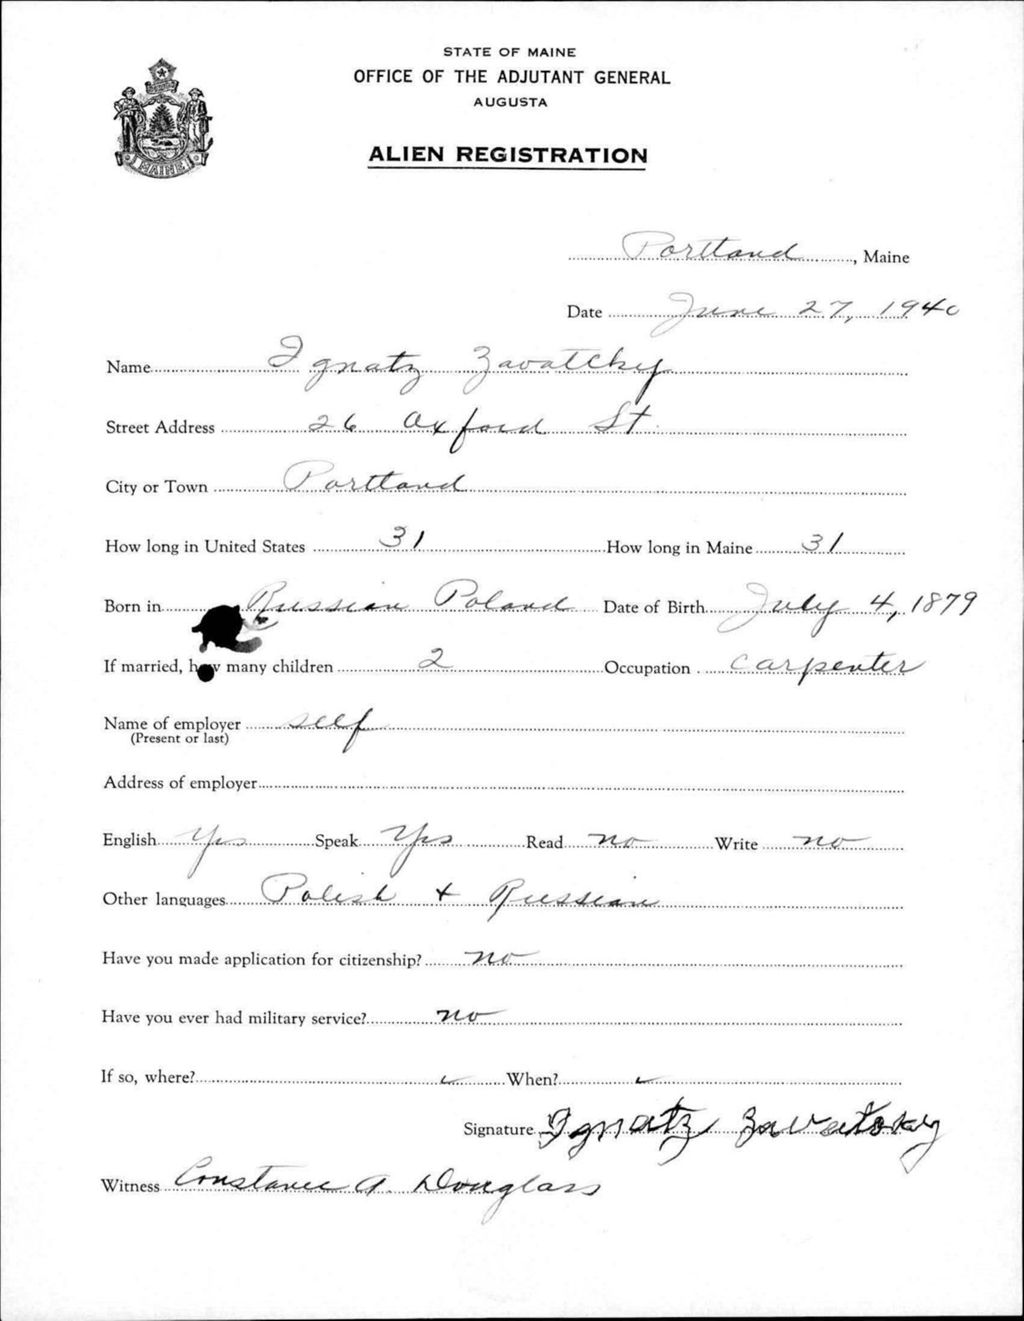 STATE OF MAINE
OFFICE OF THE ADJUTANT GENERAL
AUGUSTA
ALIEN REGISTRATION
MAINE
Portland, Maine
Date June 27, 1940
Name Ignatz Zavatchy
Street Address 26 Oxford St.
City or Town Portland
How long in United States 31 How long in Maine 31
Born in Russian Poland Date of Birth July 4, 1879
If married, how many children 2 Occupation carpenter
Name of employer self
(Present or last)
Address of employer
English Yes Speak Yes Read no Write no
Other languages Polish + Russian
Have you made application for citizenship? no
Have you ever had military service? no
If so, where? ✓ When? ✓
Signature Ignatz Zavatsky
Witness Constance A. Douglass